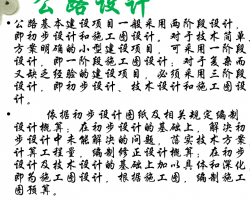 公路设计
• 公路基本建设项目一般采用两阶段设计，
即初步设计和施工图设计。对于技术简单、
方案明确的小型建设项目，可采用一阶段
设计，即一阶段施工图设计；对于复杂而
又缺乏经验的建设项目，必须采用三阶段
设计，即初步设计、技术设计和施工图设
计。
• 依据初步设计图纸及相关规定编制
设计概算；在初步设计的基础上，解决初
步设计中未能解决的问题，落实技术方案
计算工程量，编制修正设计概算；在初步
设计及技术设计的基础上加以具体和深化
即为施工图设计，根据施工图，编制施工
图预算。